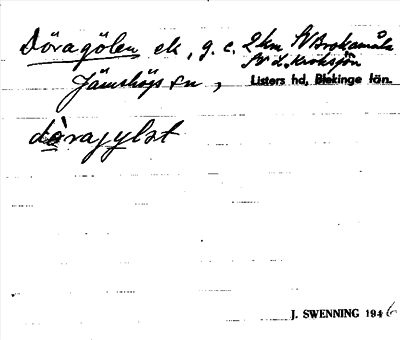 Döragölen ek, g. c. 2 km SV Brokamåla
SV L. Kroksjön
Jämshögs sn, Listers hd, Blekinge län.
dòragylət
J. SWENNING 1946